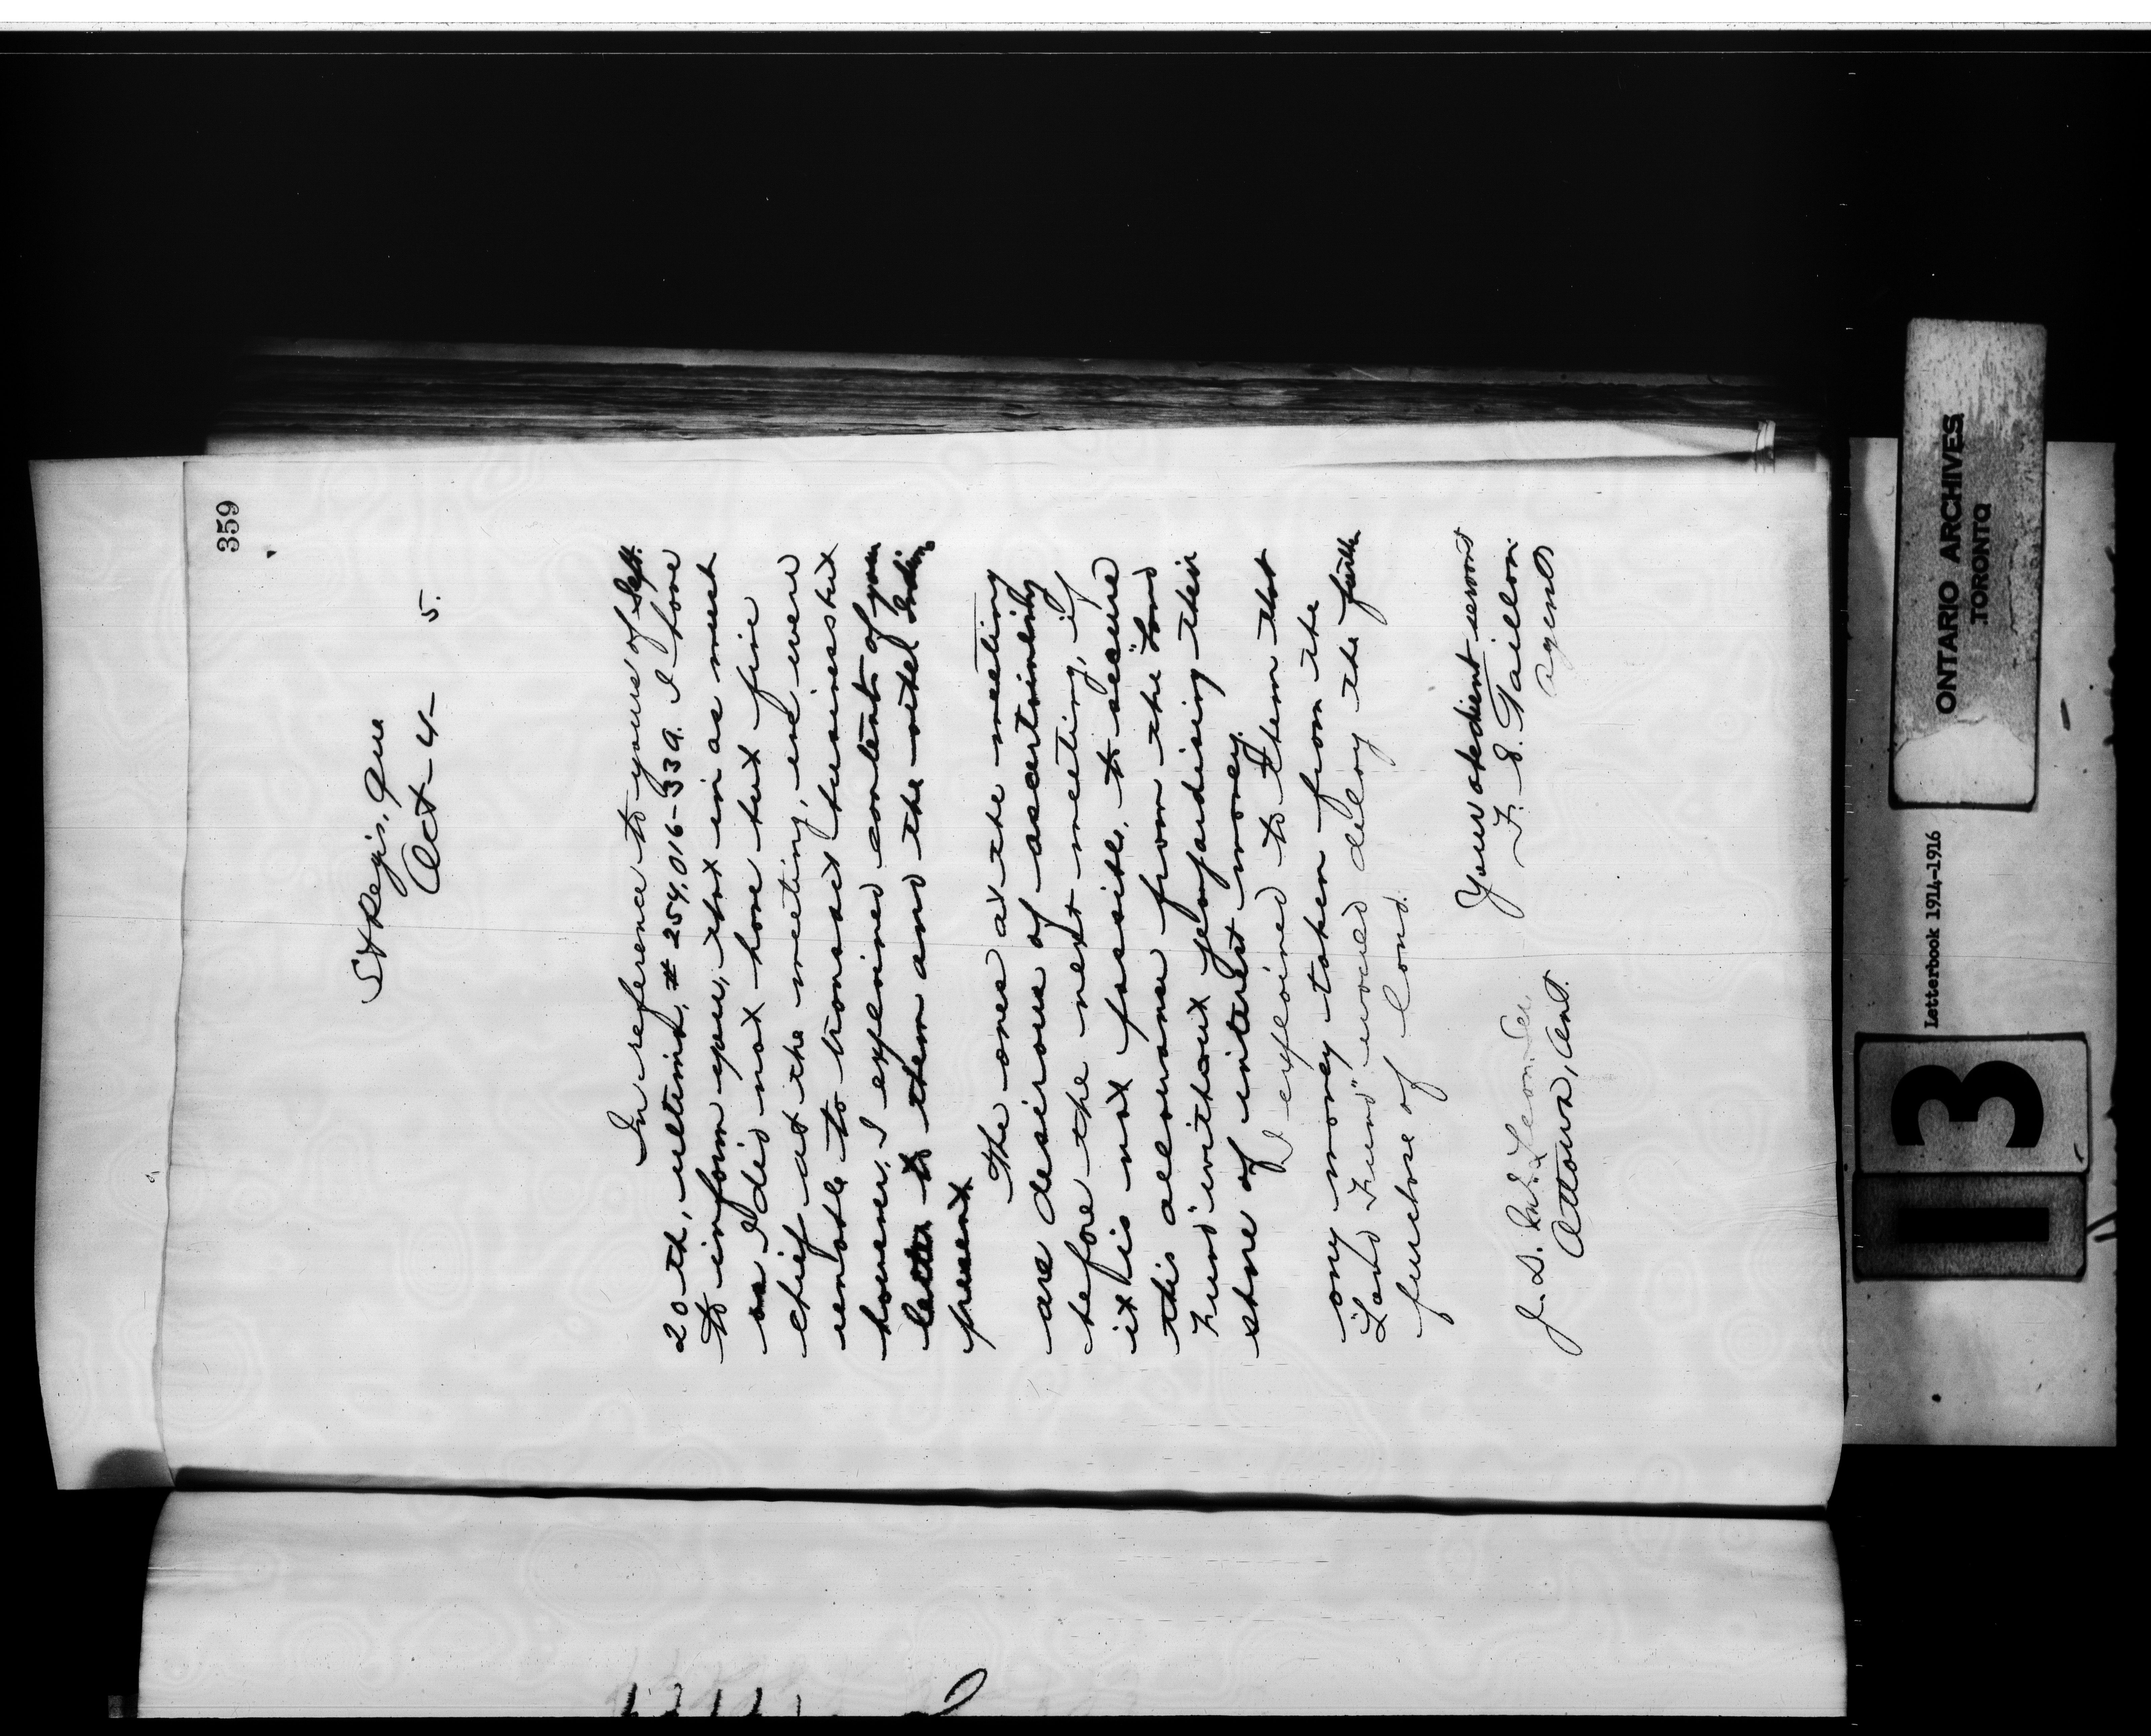 359
St Regis, Que
Oct - 4 - 5.
In reference to yours of Sept.
20-th, ultimo, # 254,016-339. I have
to inform you, that in as much
as I did not have but five
chief at the meeting, and were
unable to transact business but
however, I explained contents of your
letter to them and the other Indians
present.
The ones at the meeting
are desirous of ascertaining
before the next meeting, if
it is not possible, to secure
this allowance from the "Land
Fund" without jeopardising their
share of interest money.
I explained to them that
any money taken from the
"Land Fund" would delay the further
purchase of land.
Your obedient servant
F. E. Taillon
Agent
J. D.
Ottawa, Ont.
ONTARIO ARCHIVES
TORONTO
Letterbook 1914-1916
13